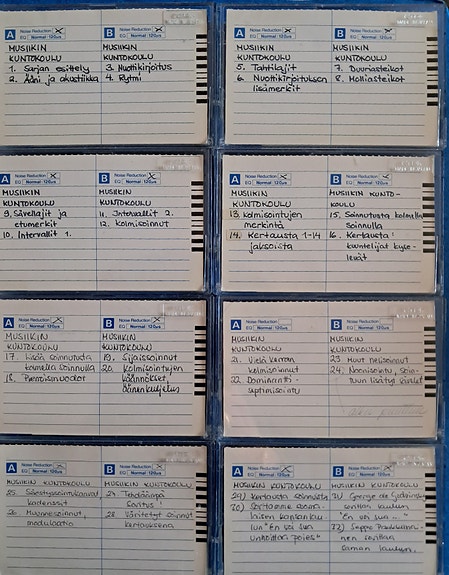 A Noise Reduction
EQ Normal·120us
MUSIIKIN
KUNTOKOULU
1. Sarjan esittely
2. Ääni ja akustiikka
B Noise Reduction
EQ Normal·120us
MUSIIKIN
KUNTOKOULU
3. Nuottikirjoitus
4. Rytmi
A Noise Reduction
EQ Normal·120us
MUSIIKIN
KUNTOKOULU
5. Tahtilajit
6. Nuottikirjoituksen
lisämerkit
B Noise Reduction
EQ Normal·120us
MUSIIKIN
KUNTOKOULU
7. Duuriasteikot
8. Molliasteikot
A Noise Reduction
EQ Normal·120us
MUSIIKIN
KUNTOKOULU
9. Sävellajit ja
etumerkit
10. Intervallit 1.
B Noise Reduction
EQ Normal·120us
MUSIIKIN
KUNTOKOULU
11. Intervallit 2.
12. Kolmisoinnut
A Noise Reduction
EQ Normal·120us
MUSIIKIN
KUNTOKOULU
13. Kolmisointujen
merkintä
14. Kertausta 1-14
jaksoista
B Noise Reduction
EQ Normal·120us
MUSIIKIN KUNTO-
KOULU
15. Soinnutusta kolmella
soinnulla
16. Kertausta:
kuuntelijat kyse-
levät
A Noise Reduction
EQ Normal·120us
MUSIIKIN
KUNTOKOULU
17. Lisää soinnutusta
kolmella soinnulla
18. Pienoismuodot
B Noise Reduction
EQ Normal·120us
MUSIIKIN
KUNTOKOULU
19. Sijaissoinnut
20. Kolmisointujen
käännökset,
äänenkuljetus
A Noise Reduction
EQ Normal·120us
MUSIIKIN
KUNTOKOULU
21. Vielä kerran
kolmisoinnut
22. Dominantti-
septimisointu
B Noise Reduction
EQ Normal·120us
MUSIIKIN
KUNTOKOULU
23. Muut nelisoinnut
24. Noonisointu, Soin-
tuun lisätyt sävelet
A Noise Reduction
EQ Normal·120us
MUSIIKIN KUNTOKOULU
25.
kadenssit
26. Muunnesoinnut,
modulaatio
B Noise Reduction
EQ Normal·120us
MUSIIKIN KUNTOKOULU
27. Tehdäänpä
sovitus!
28. Väritetyt soinnut
kertauksena
A Noise Reduction
EQ Normal·120us
MUSIIKIN KUNTOKOULU
29) Kertausta soinnuista
30) Sovitamme
laisen kansanlau-
lun "En voi sua
unhoittaa poies"
B Noise Reduction
EQ Normal·120us
MUSIIKIN KUNTOKOULU
31) George de
sovittaa laulun
"En voi sua ..."
32) Seppo
nen sovittaa
saman laulun.